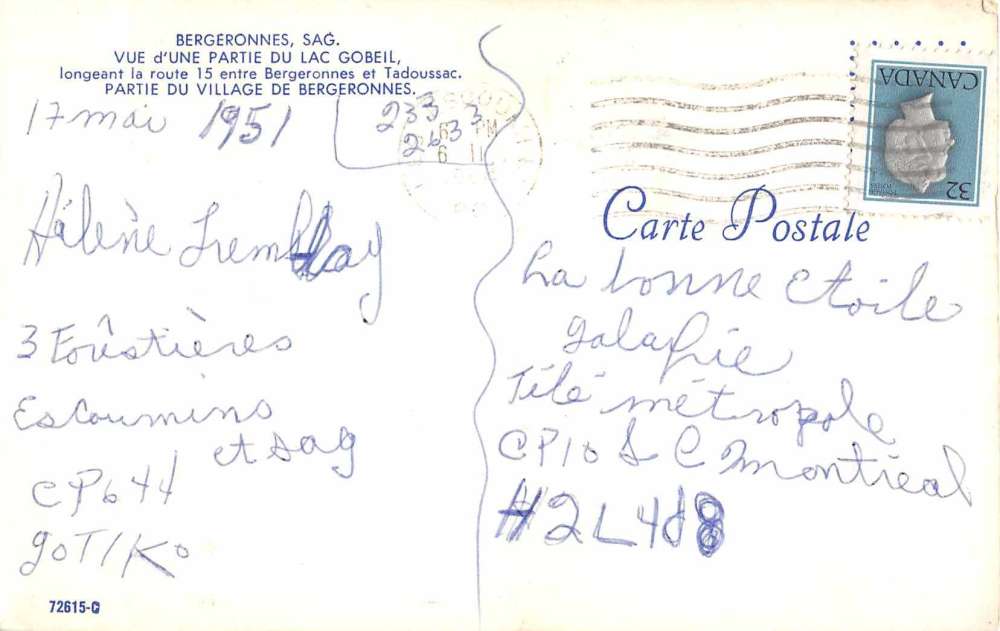 BERGERONNES, SAG.
VUE d'UNE PARTIE DU LAC GOBEIL,
longeant la route 15 entre Bergeronnes et Tadoussac.
PARTIE DU VILLAGE DE BERGERONNES.
17 mai 1951
233
2633
PM
6
Hélène Tremblay
3 Forêstières
Escoumins
et sag
CP644
goT1Ko
72615-C
CANADA
32
Carte Postale
La bonne etoile
galaxie
Télé métropole
CP10 S C Montreal
H2L4J8